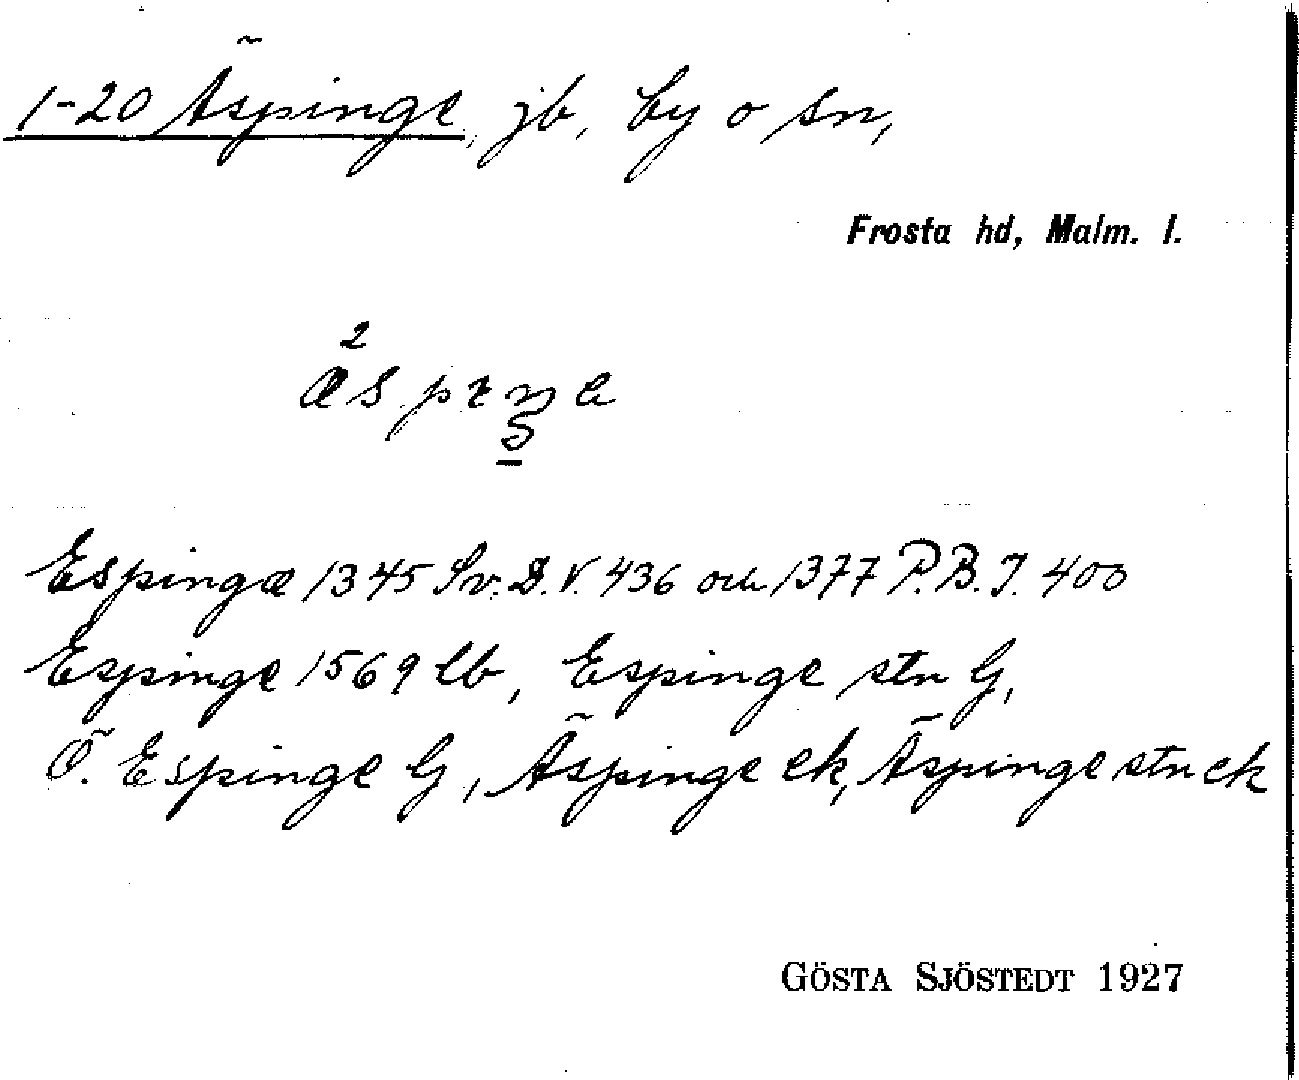 1-20 Äspinge, jb, by o sn,
Frosta hd, Malm. l.
2
Espingæ 1345 Sv. D. V. 436 och 1377 P.B.T. 400
Espinge 1569 lb, Espinge stn G,
Ö. Espinge G, Äspinge ek, Äspinge stn ek
GÖSTA SJÖSTEDT 1927